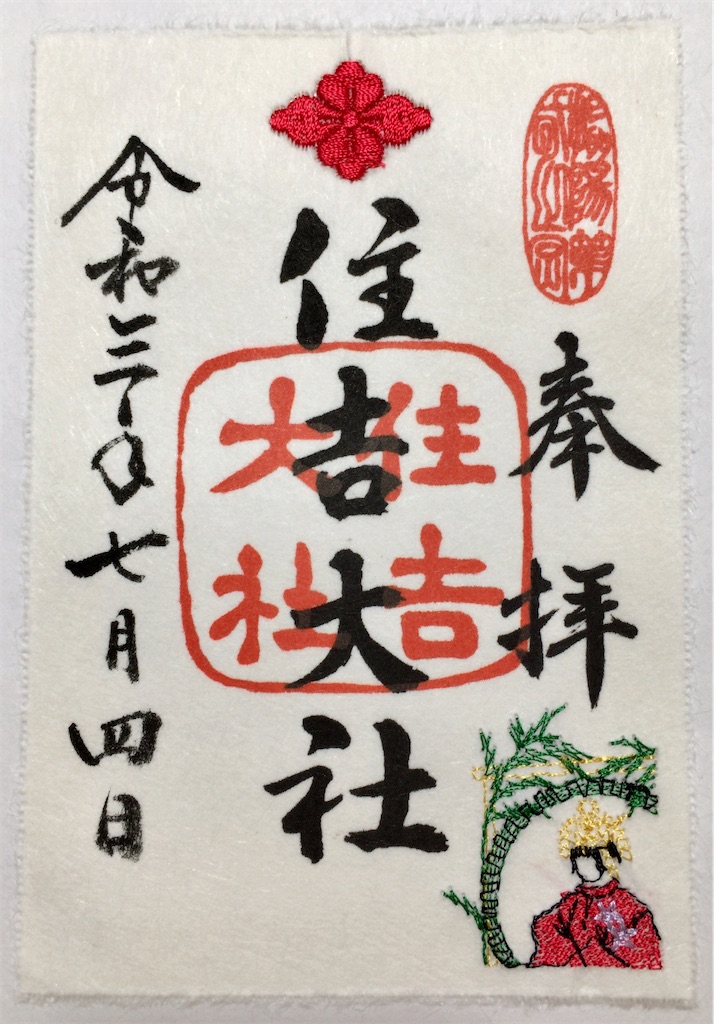 奉拝
住吉大社
住吉
大社
令和三年七月四日